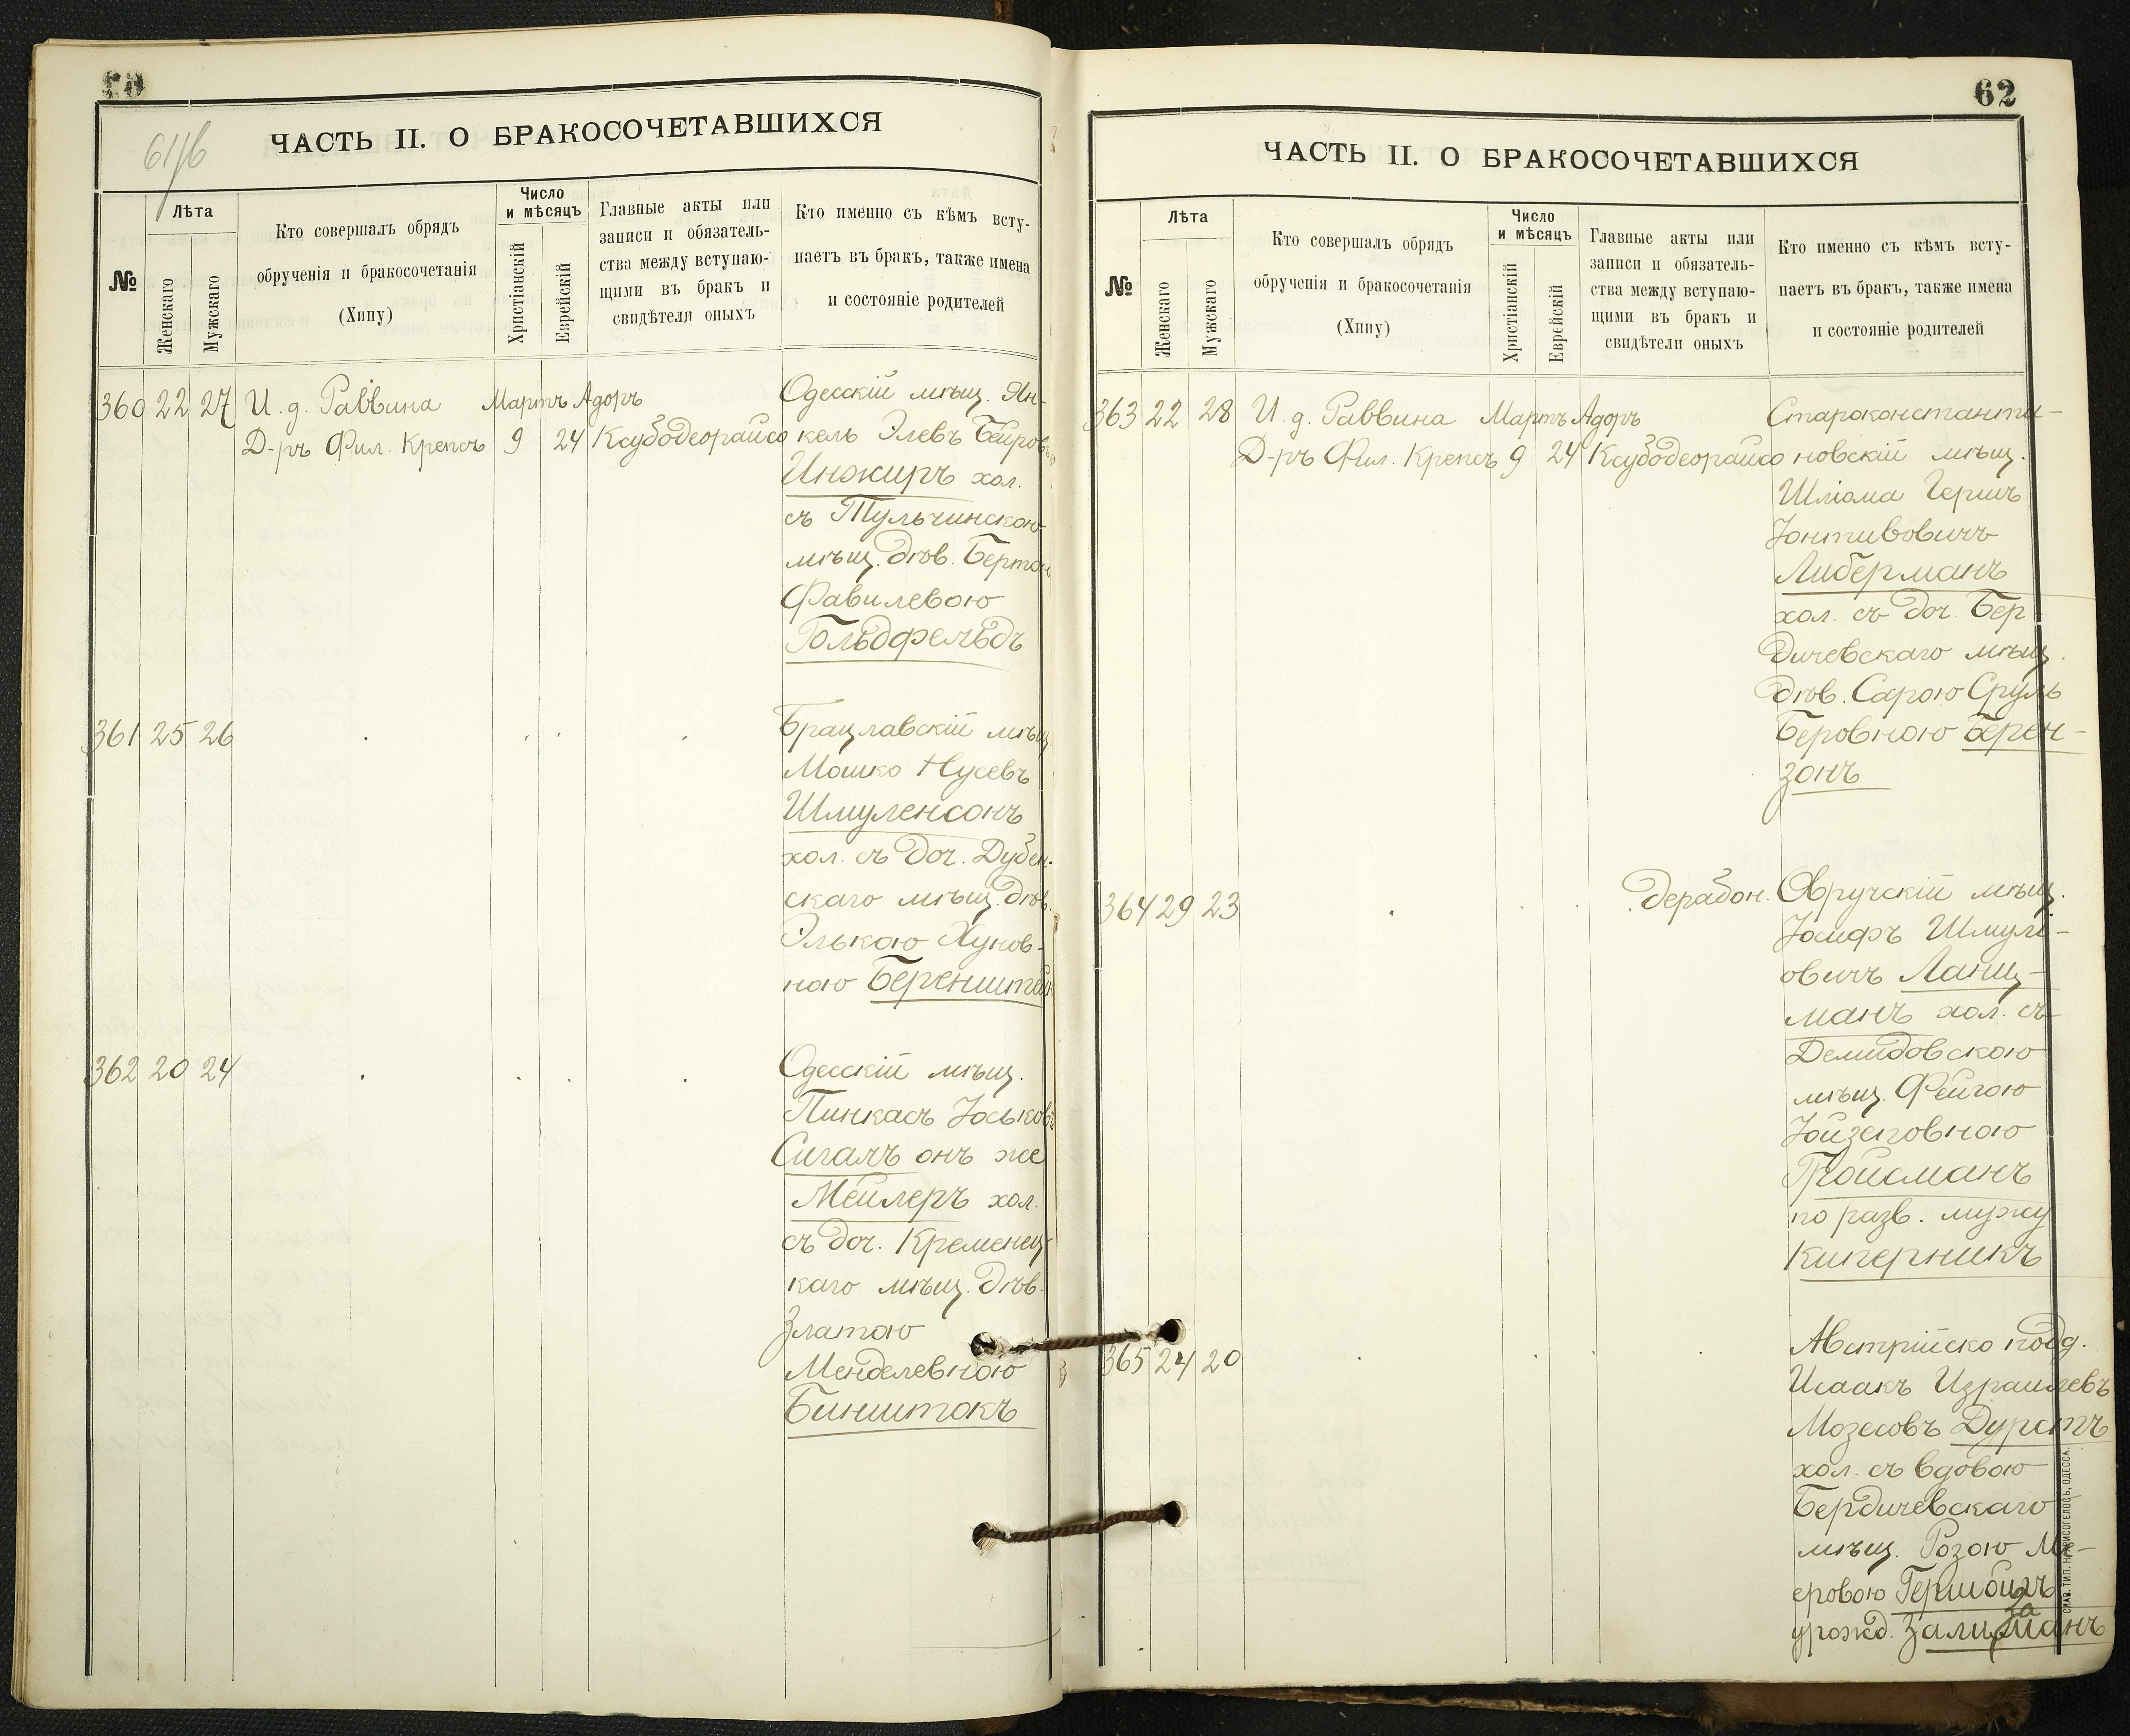 61/б
ЧАСТЬ II. О БРАКОСОЧЕТАВШИХСЯ
№
Лѣта
Женскаго
Мужскаго
Кто совершалъ обрядъ
обрученія и бракосочетанія
(Хипу)
Число
и мѣсяцъ
Христіанскій
Еврейскій
Главные акты или
записи и обязатель-
ства между вступаю-
щими въ бракъ и
свидѣтели оныхъ
Кто именно съ кѣмъ всту-
паетъ въ бракъ, также имена
и состояніе родителей
360 22 27 И. д. Раввина Мартъ Адоръ Одесскій мѣщ. Ян-
Д-ръ Фил. Крепсъ 9 24 Ксубодеорайсо кель Элевъ Беировъ
Инжиръ хол.
съ Тульчинскою
мѣщ. дѣв. Бертою
Фавилевою
Гольдфельдъ
361 25 26 Брацлавскій мѣщ
Мошко Нусевъ
Шмуленсонъ
хол. съ доч. Дубен.
скаго мѣщ. дѣв.
Элькою Хунов-
ною Беренштейн
362 20 24 Одесскій мѣщ.
Пинкасъ Іоськовъ
Сигалъ онъ же
Мейлеръ хол.
съ доч. Кременец-
каго мѣщ. дѣв.
Златою
Менделевною
Бинштокъ
62
ЧАСТЬ II. О БРАКОСОЧЕТАВШИХСЯ
№
Лѣта
Женскаго
Мужскаго
Кто совершалъ обрядъ
обрученія и бракосочетанія
(Хипу)
Число
и мѣсяцъ
Христіанскій
Еврейскій
Главные акты или
записи и обязатель-
ства между вступаю-
щими въ бракъ и
свидѣтели оныхъ
Кто именно съ кѣмъ всту-
паетъ въ бракъ, также имена
и состояніе родителей
363 22 28 И. д. Раввина Мартъ Адоръ Староконстанти-
Д-ръ Фил. Крепсъ 9 24 Ксубодеорайсо новскій мѣщ.
Шліома Гершъ
Іонтивовичъ
Либерманъ
хол. съ доч. Бер
дичевскаго мѣщ.
дѣв. Сарою Сруль
Беровною Берен-
зонъ
364 29 23 дерабон. Овручскій мѣщ.
Іосифъ Шмуле-
овичъ Ланц-
манъ хол. съ
Демидовскою
мѣщ. Фейгою
Іойзеповною
Гройсманъ
по разв. мужу
Киперникъ
365 24 20 Австрійско подд.
Исаакъ Израилевъ
Мозесовъ Дурстъ
хол. съ вдовою
Бердичевскаго
мѣщ. Розою Ме-
еровою
за
урожд.
СЛАВ. ТИП. Н. ХРИСОГЕЛОСЪ, ОДЕССА.